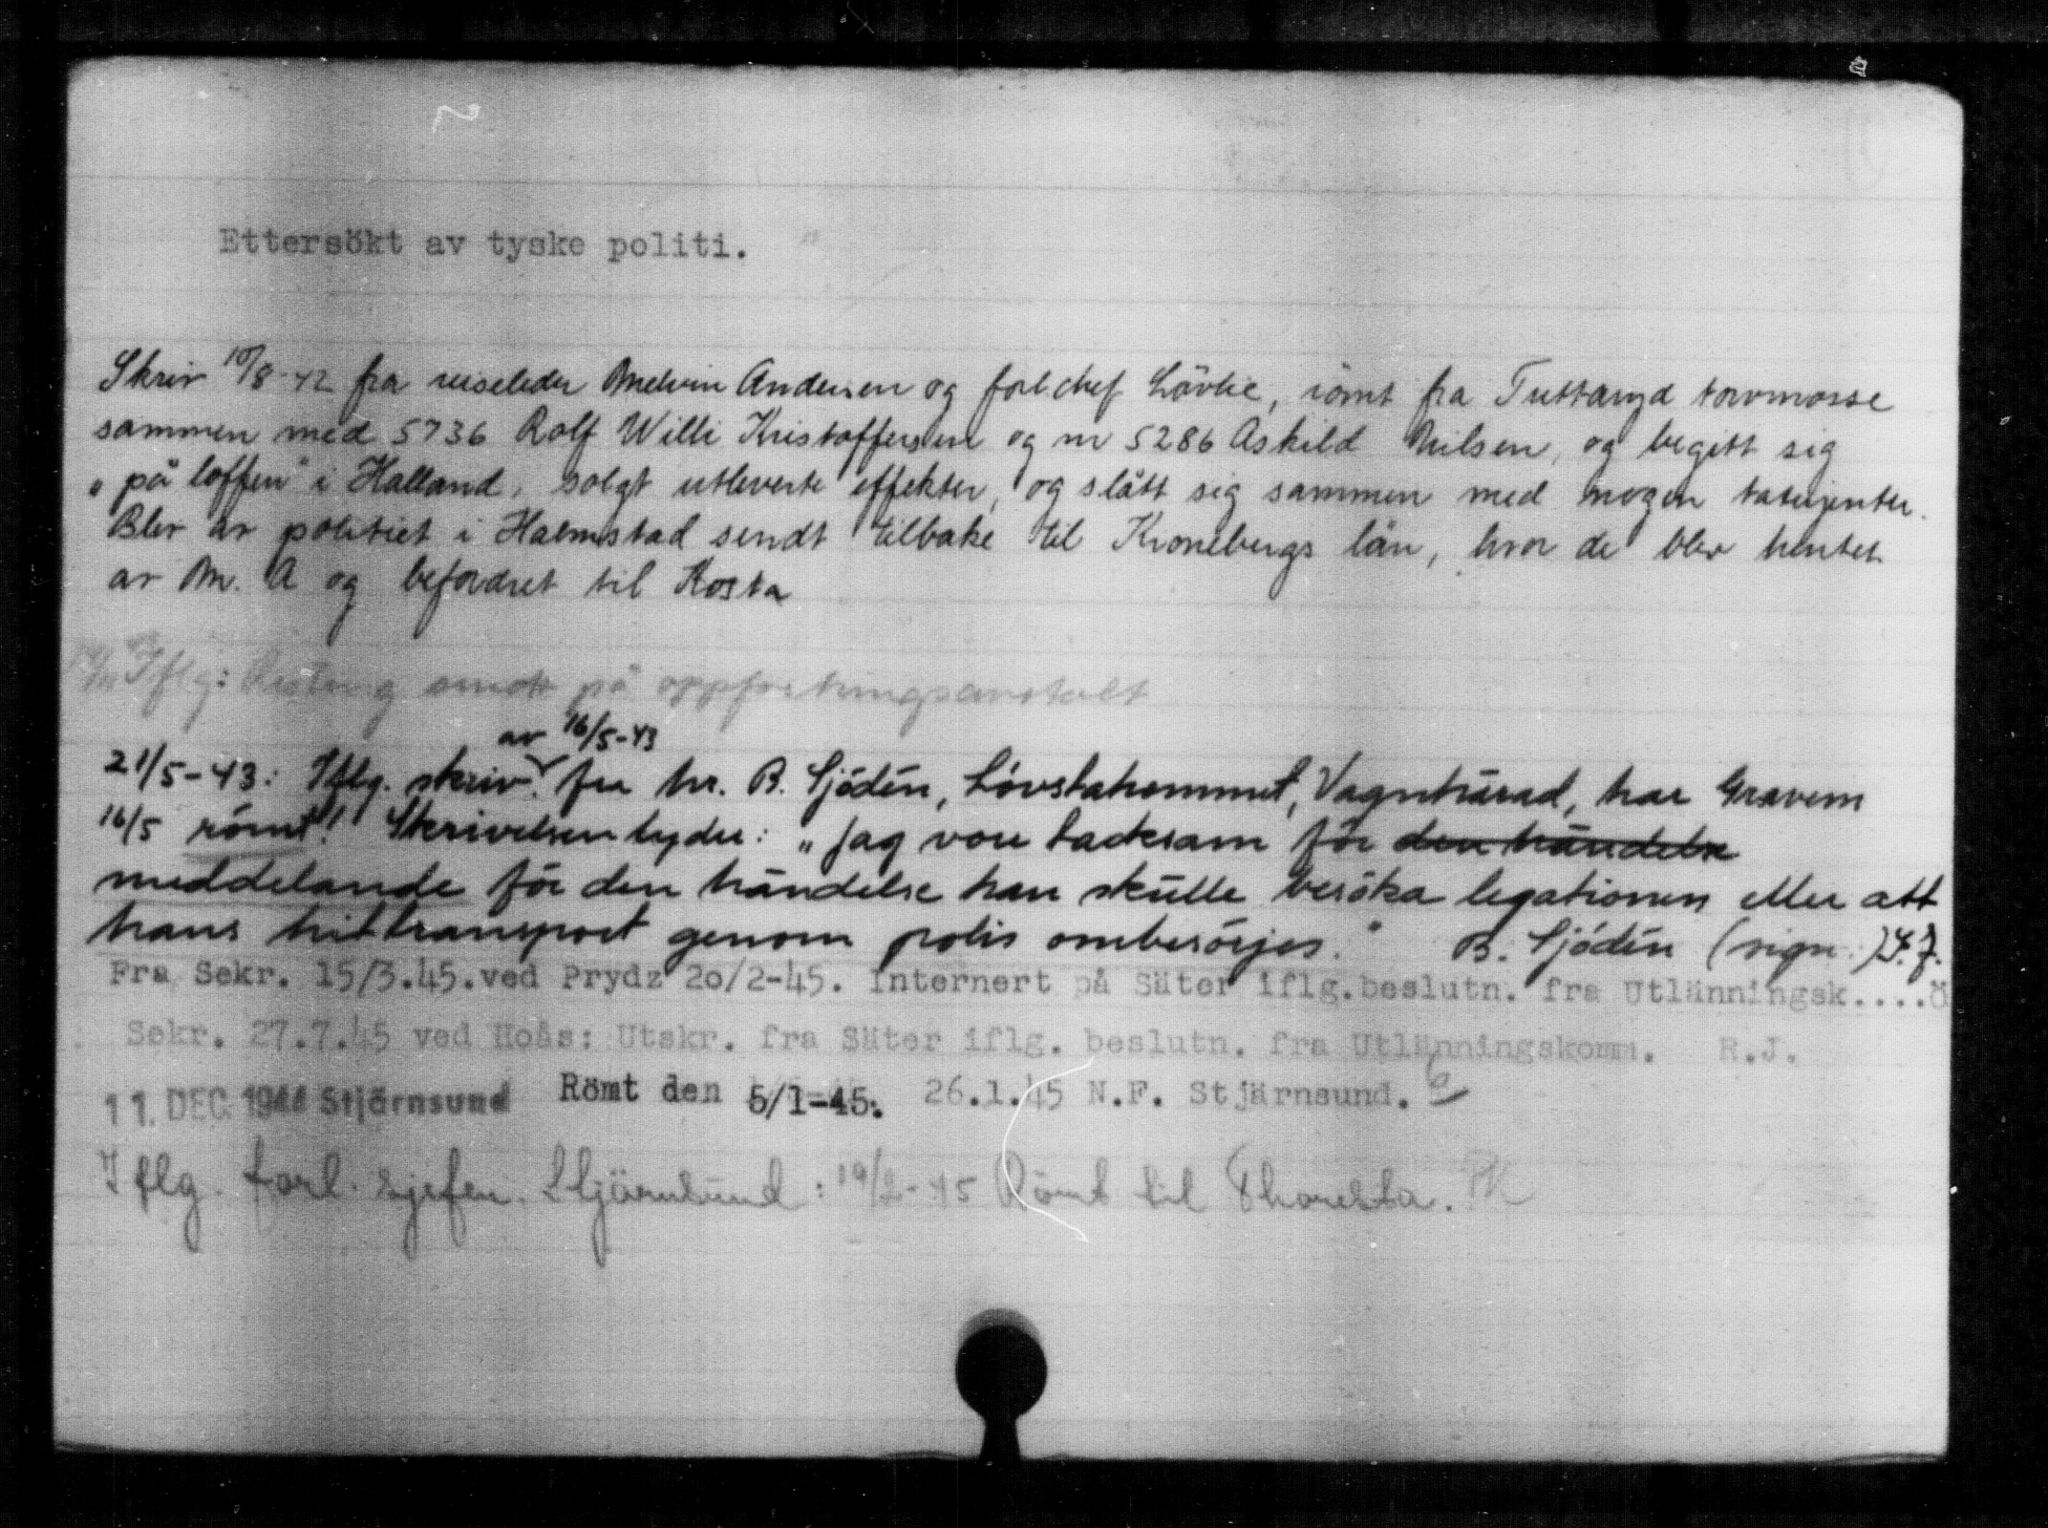 Ettersökt av tyske politi.
Skriv 10/8-42 fra reiseleder Melvin Andersen og forl.chef Lövlie, römt fra Tuttaryd torvmosse
sammen med 5736 Rolf Willi Kristoffersen og nr 5286 Askild Nilsen, og begitt sig
„på loffen" i Halland, solgt utleverte effekter, og slått sig sammen med nogen taterjenter.
Blev av politiet i Halmstad sendt tilbake til Kronebergs län, hvor de blev hentet
av M. A og befordret til Kosta
Iflg: på oppfostringsanstalt
av 16/5-43
21/5-43: Iflg. skriv. fra hr. B. Sjödén, Lövstahemmet, Vagnhärad, har Gravem
16/5 römt! Skrivelsen lyder: „Jag vore tacksam för den händelse
meddelande för den händelse han skulle besöka legationen eller att
hans hittransport genom polis ombesörjes." B. Sjödén (sign.) S.J.
Fra Sekr. 15/3.45.ved Prydz 20/2-45. Internert på Säter iflg.beslutn. fra Utlänningsk....Ö
Sekr. 27.7.45 ved Hoås: Utskr. fra Säter iflg. beslutn. fra Utlänningskomm. R.J.
11. DEC. 1944 Stjärnsund Römt den 5/1-45. 26.1.45 N.F. Stjärnsund.
Iflg. forl. sjefen, Stjärnsund: 19/2-45 Römt til Thoresta.